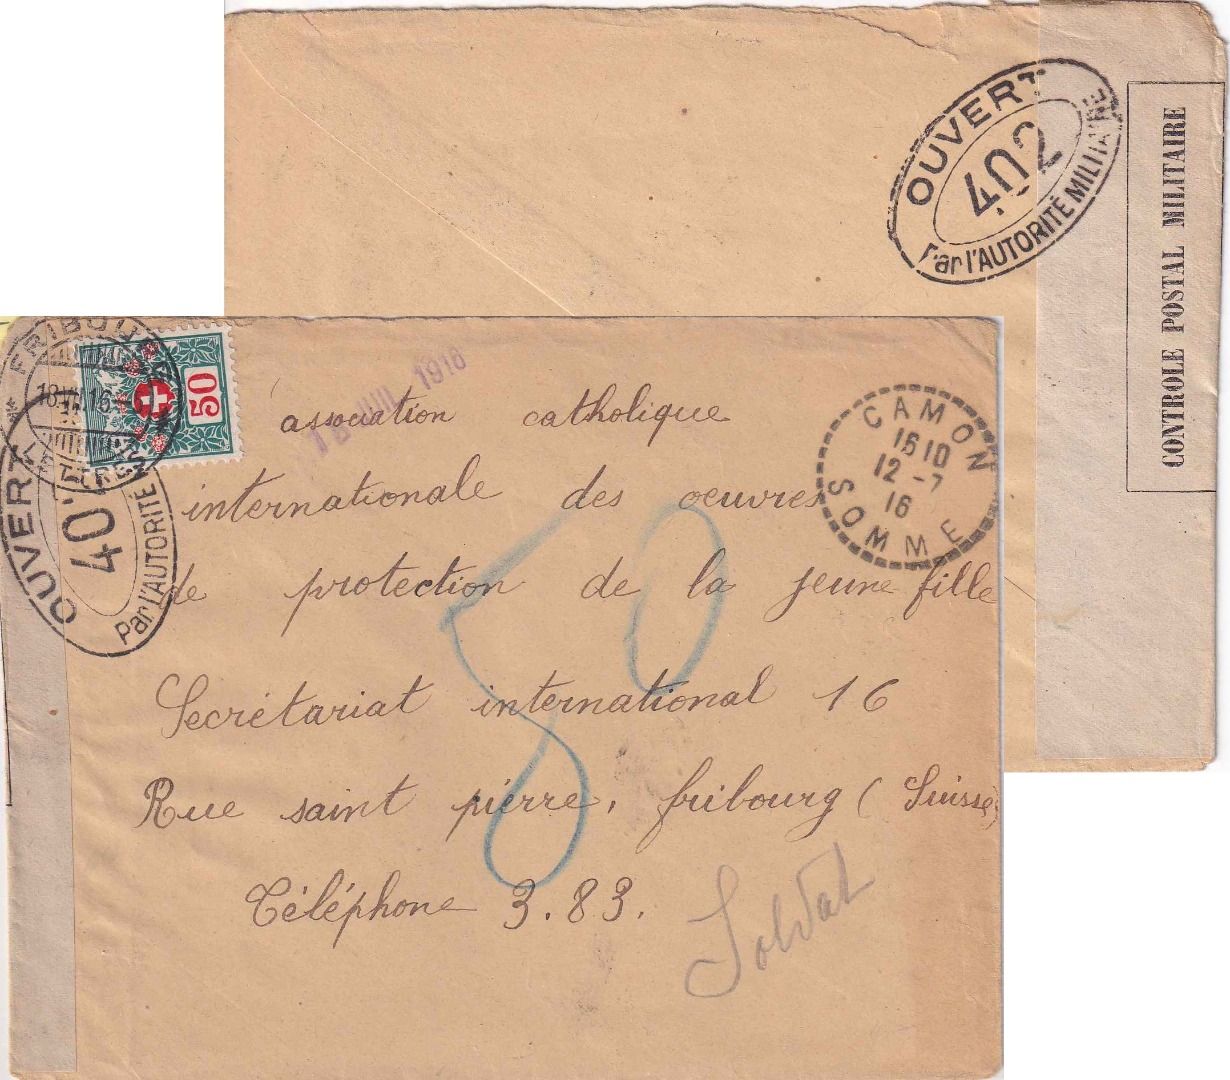 OUVERT
402
Par l'AUTORITÉ MILITAIRE
CONTROLE POSTAL MILITAIRE
FRIBOURG
50
OUVERT
40
Par l'AUTORITÉ
JUIL 1916
CAMON
16 10
12 -7
16
SOMME
association catholique
internationale des oeuvres
de protection de la jeune fille
Secrétariat international 16
Rue saint pierre, fribourg (Suisse)
Téléphone 3.83.
50
Soldat